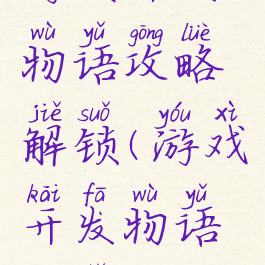 wù yǔ gōng lüè
物语攻略
jiě suǒ yóu xì
解锁(游戏
kāi fā wù yǔ
开发物语